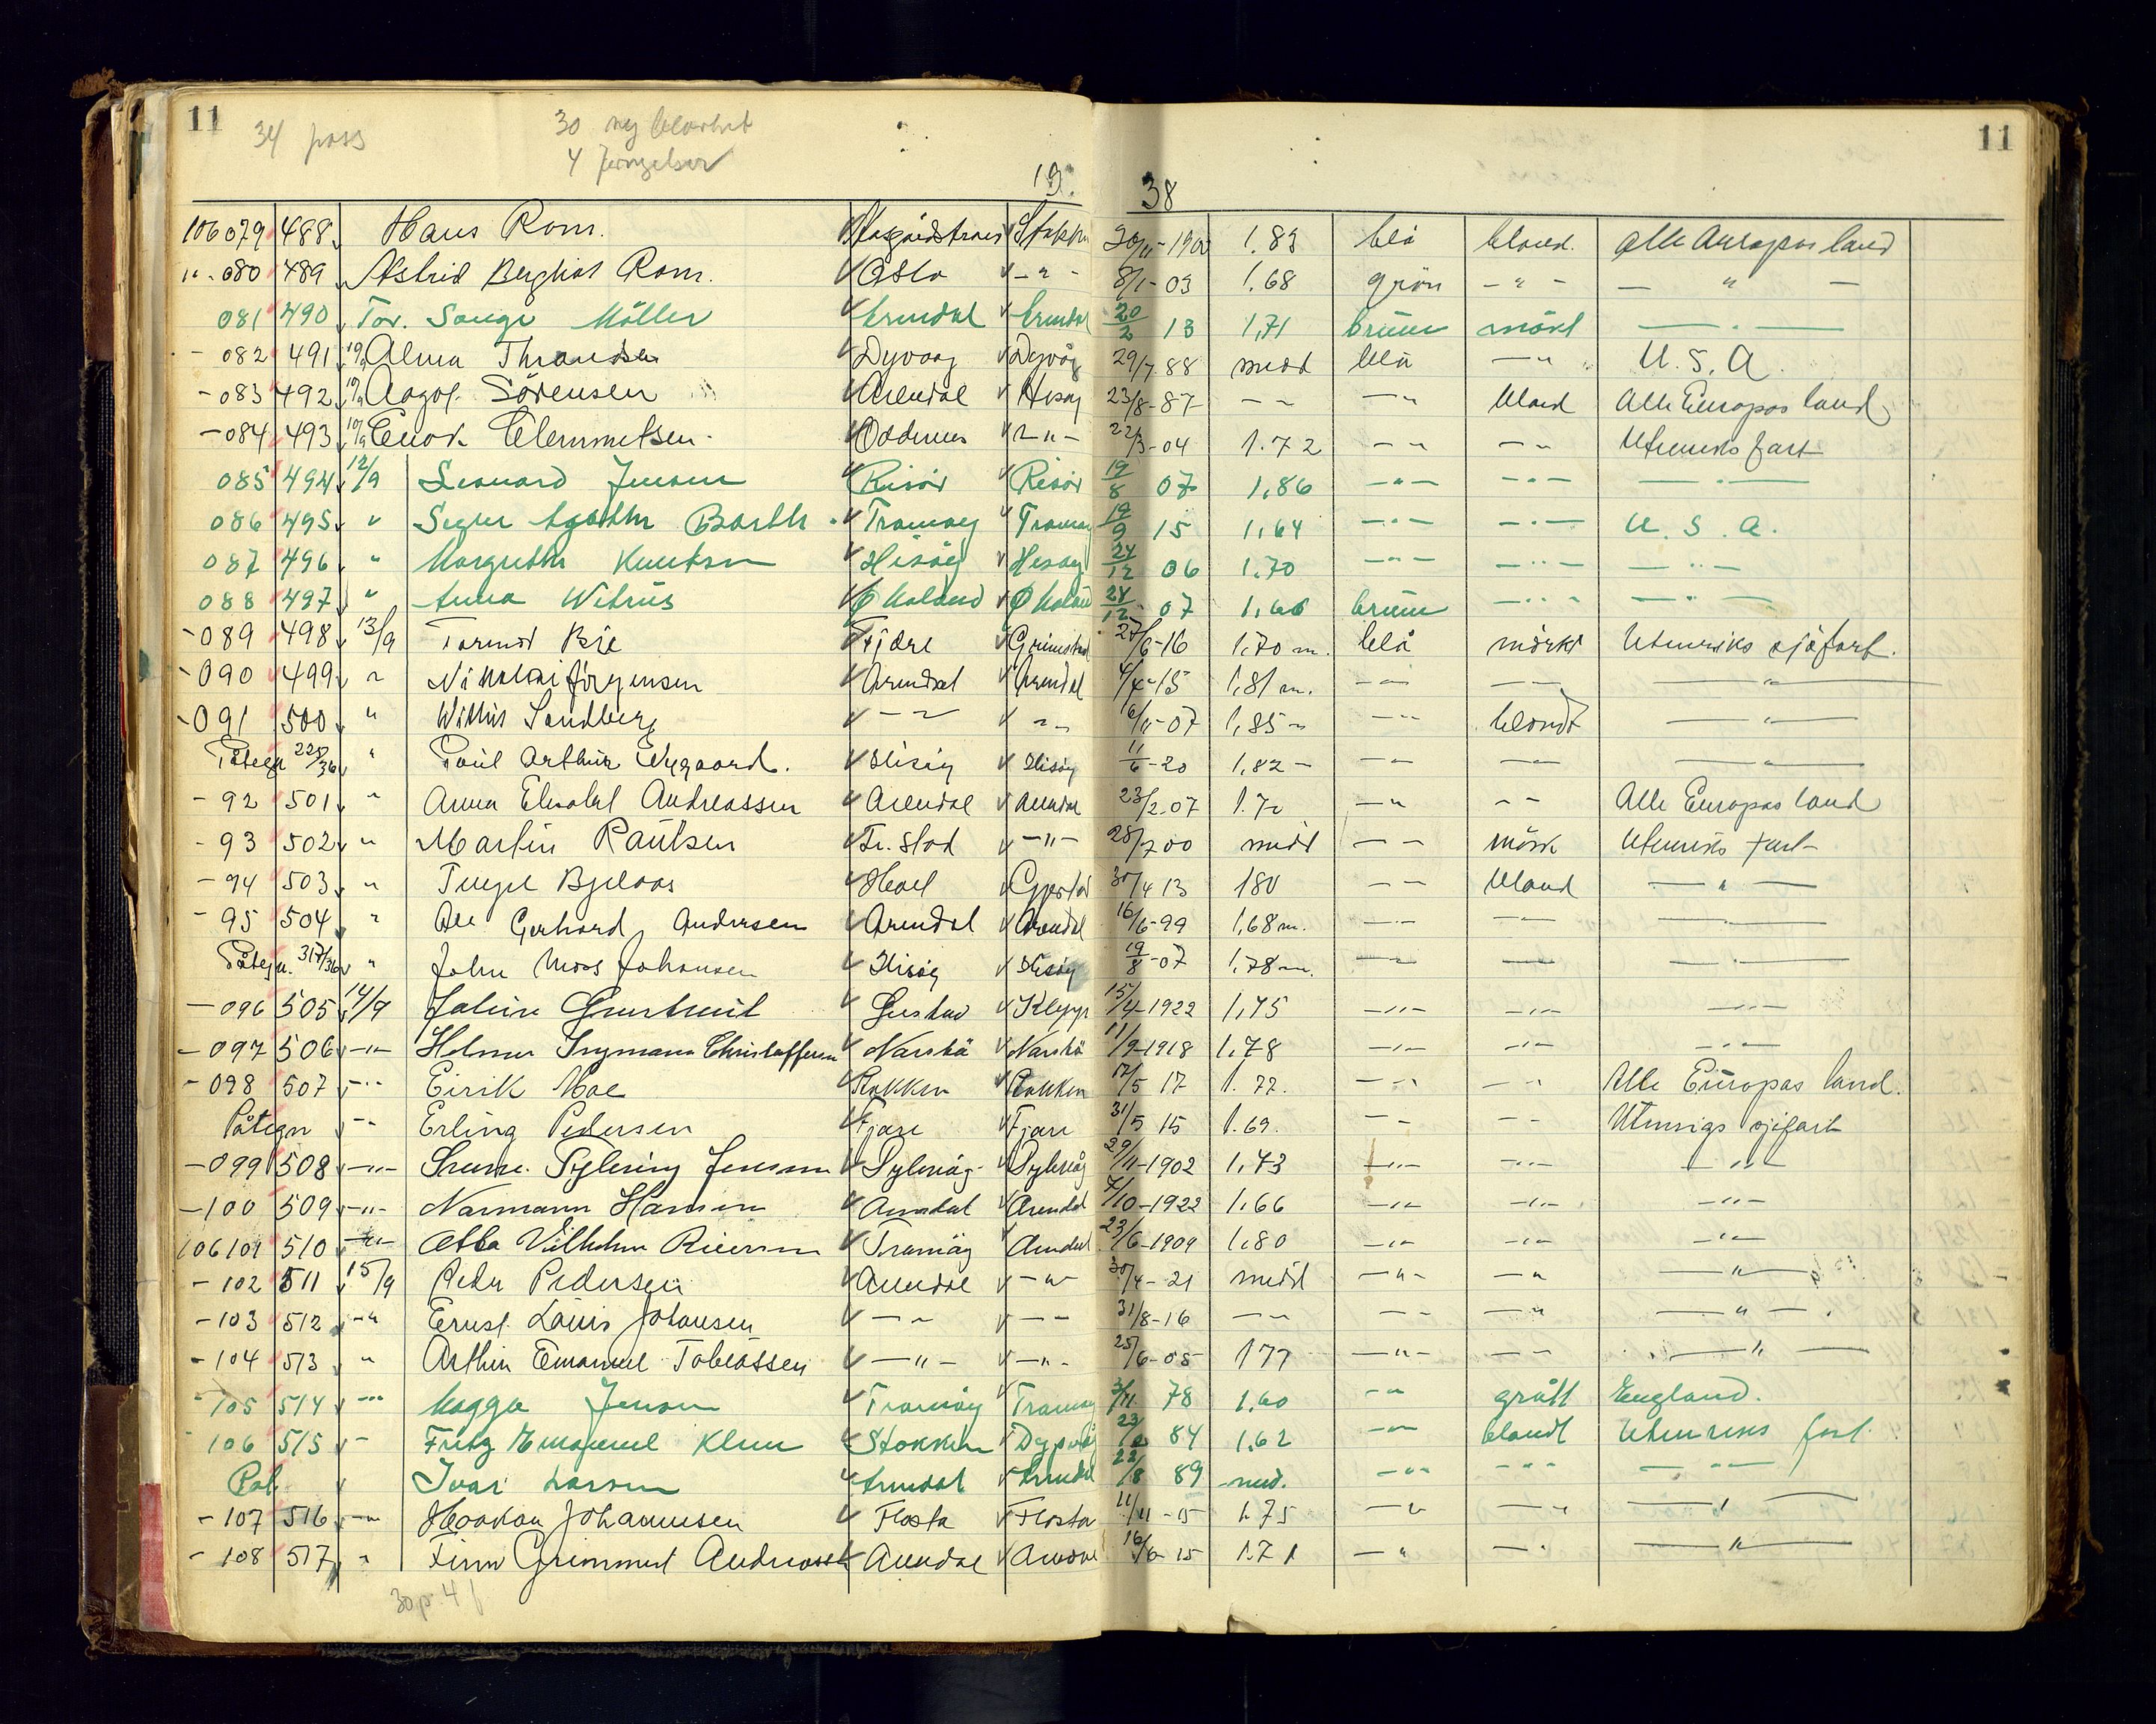 11 11
34 pass 30 ny
4
19. 38
106079 488 Hans Rom. 1.83 blå blond. alle Europas land
" - 080 489 Astrid Berghiot Rom. Oslo - " - 8/1-03 1.68 grön - " - - " -
081 490 Tor. Sange Möller Arendal Arendal 20/2 13 1,71 brune mörkt - " -
- 082 491 Alma Thrandsen Dyvaag Dypvåg 29/7 88 midd blå - " U. S. A.
- 083 492 Aagot. Sörensen Arendal Hisøy 23/8-87 - - - " blond Alle Europas land
- 084 493 10/9 Enok Clemmetsen. Oddernes - " - 22/3-04 1.72 - - - - Utenriks fart
085 494 12/9 Leonard Jensen Risör Risör 19/8 07 1,86 - " - - " - - " -
086 495 " Signe Agathe Barth. Tromøy Tromøy 19/9 15 1,64 - " - - " - U. S. A.
087 496 " Margrethe Knutsen Hisøy Hisøy 24/12 06 1,70 - " - - " - - " -
088 497 " Anna Ø Moland Ø Moland 07 brune - " - - " -
- 089 498 13/9 Tormod Bie Fjære Grimstad 27/6-16 1,70 m. blå mörkt Utenriks sjöfart.
- 090 499 " Nikolai Jörgensen Arendal Arendal 4/4-15 1,81 m. - " - - " - - " -
- 091 500 " Sandberg - " - " - 6/11-07 1,85 - - " - blondt - " -
Påtegn 225/36 " Paul Arthur Nygaard. Hisøy Hisøy 11/6-20 1,82 - - " - - " - - " -
- 92 501 " Anna Elisabet Andreassen Arendal Arendal 23/2.07 1.70 - " - - Alle Europas land
- 93 502 " Martin Paulsen Fr. Stad - " - 28/7 00 midd - - mörk Utenriks fart
- 94 503 " Bjelaas 30/4 13 180 - - blond - " -
- 95 504 " Ole Gerhard Andersen Arendal Arendal 16/6-99 1,68 m. - " - - " - - " -
Påtegn. 317/36 " John Moss Johansen Hisøy Hisøy 19/8-07 1,78 m. - " - - " - - " -
- 096 505 14/9 15/4-1922 1,75 - " - - " - - " -
- 097 506 - " - Christoffersen Narestø Narestø 11/9-1918 1,78 - " - - " - - " -
- 098 507 - " - Eirik Moe Stokken Stokken 17/5 17 1.77. - " - " Alle Europas land.
Påtegn - " Erling Pedersen Fjære Fjære 31/5 15 1.69. - - - Utenrigs sjøfart
- 099 508 - " - Jensen 29/11-1902 1,73 - " - - " - - " -
- 100 509 - " - Normann Hansen Arendal Arendal 7/10-1922 1,66 - " - - " - - " -
106101 510 - " - Otto Vilhelm Tromøy Arendal 23/6-1909 1,80 - " - - " - - " -
- 102 511 15/9 Peder Pedersen Arendal - " - 30/4-21 midd - " - - " - " -
- 103 512 - " Ernst Louis Johansen - " - - 31/8-16 - - - - - " - " -
- 104 513 " Arthur Emanuel Tobiassen - " - - " - 25/6-05 177 - " - - - - " -
- 105 514 - " Magga Jensen Tromøy Tromøy 3/11 78 1,60 - " grått England.
106 515 - Fritz Emanuel Stokken Dypvåg 84 1,62 - " blondt Utenriks fart.
Påt. Ivar Larsen Arendal Arendal 22/8 89 mid. - " - - " - - " -
- 107 516 - " Haakon Johannesen Flosta Flosta 11/11-15 1.75 - " - " - " -
- 108 517 " Finn Andreassen Arendal Arendal 16/6-15 1.71 - " - " - " -
30 p. 4 f